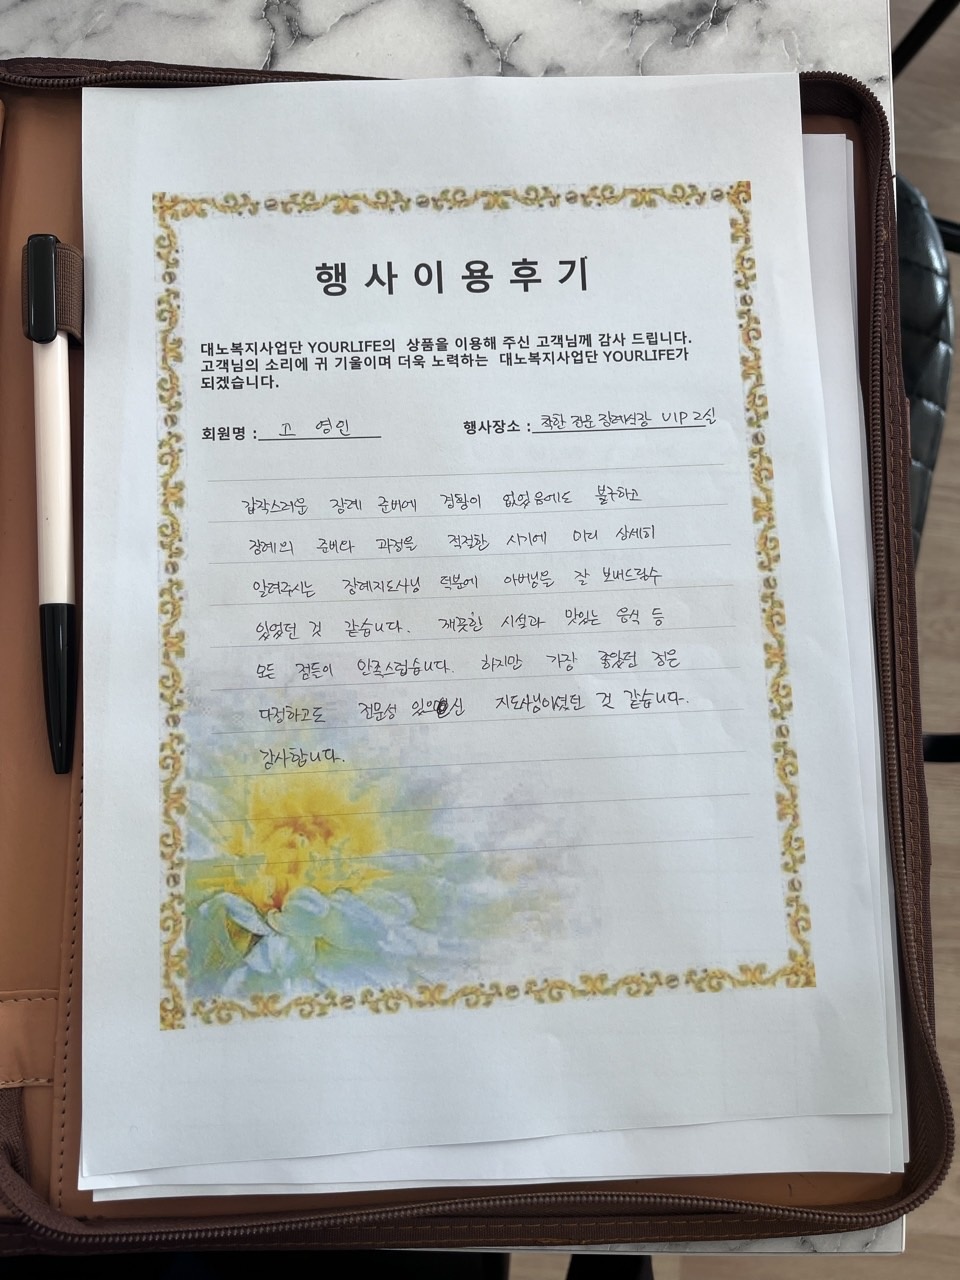 행사이용후기
대노복지사업단 YOURLIFE의 상품을 이용해 주신 고객님께 감사 드립니다.
고객님의 소리에 귀 기울이며 더욱 노력하는 대노복지사업단 YOURLIFE가
되겠습니다.
회원명 : 고 영인 행사장소 : 착한 전문 장례식장 VIP 2실
갑작스러운 장례 준비에 경황이 없었음에도 불구하고
장례의 준비와 과정을 적절한 시기에 미리 상세히
알려주시는 장례지도사님 덕분에 아버님을 잘 보내드릴수
있었던 것 같습니다. 깨끗한 시설과 맛있는 음식 등
모든 점들이 만족스럽습니다. 하지만 가장 좋았던 점은
다정하고도 전문성 있으신 지도사님이셨던 것 같습니다.
감사합니다.